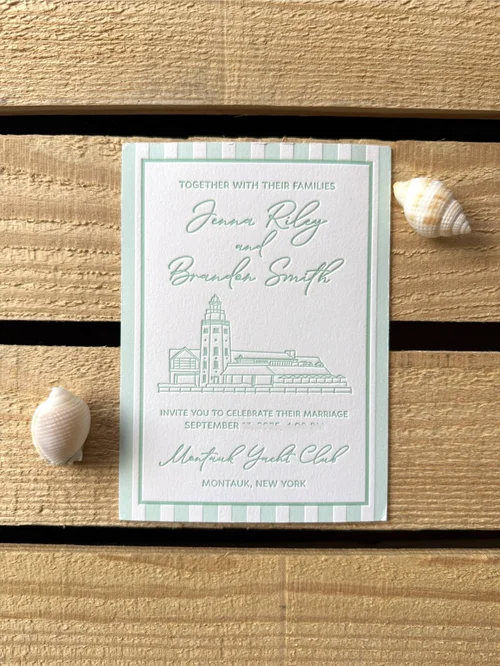 TOGETHER WITH THEIR FAMILIES
Jenna Riley
and
Brandon Smith
INVITE YOU TO CELEBRATE THEIR MARRIAGE
SEPTEMBER
Montauk Yacht Club
MONTAUK, NEW YORK